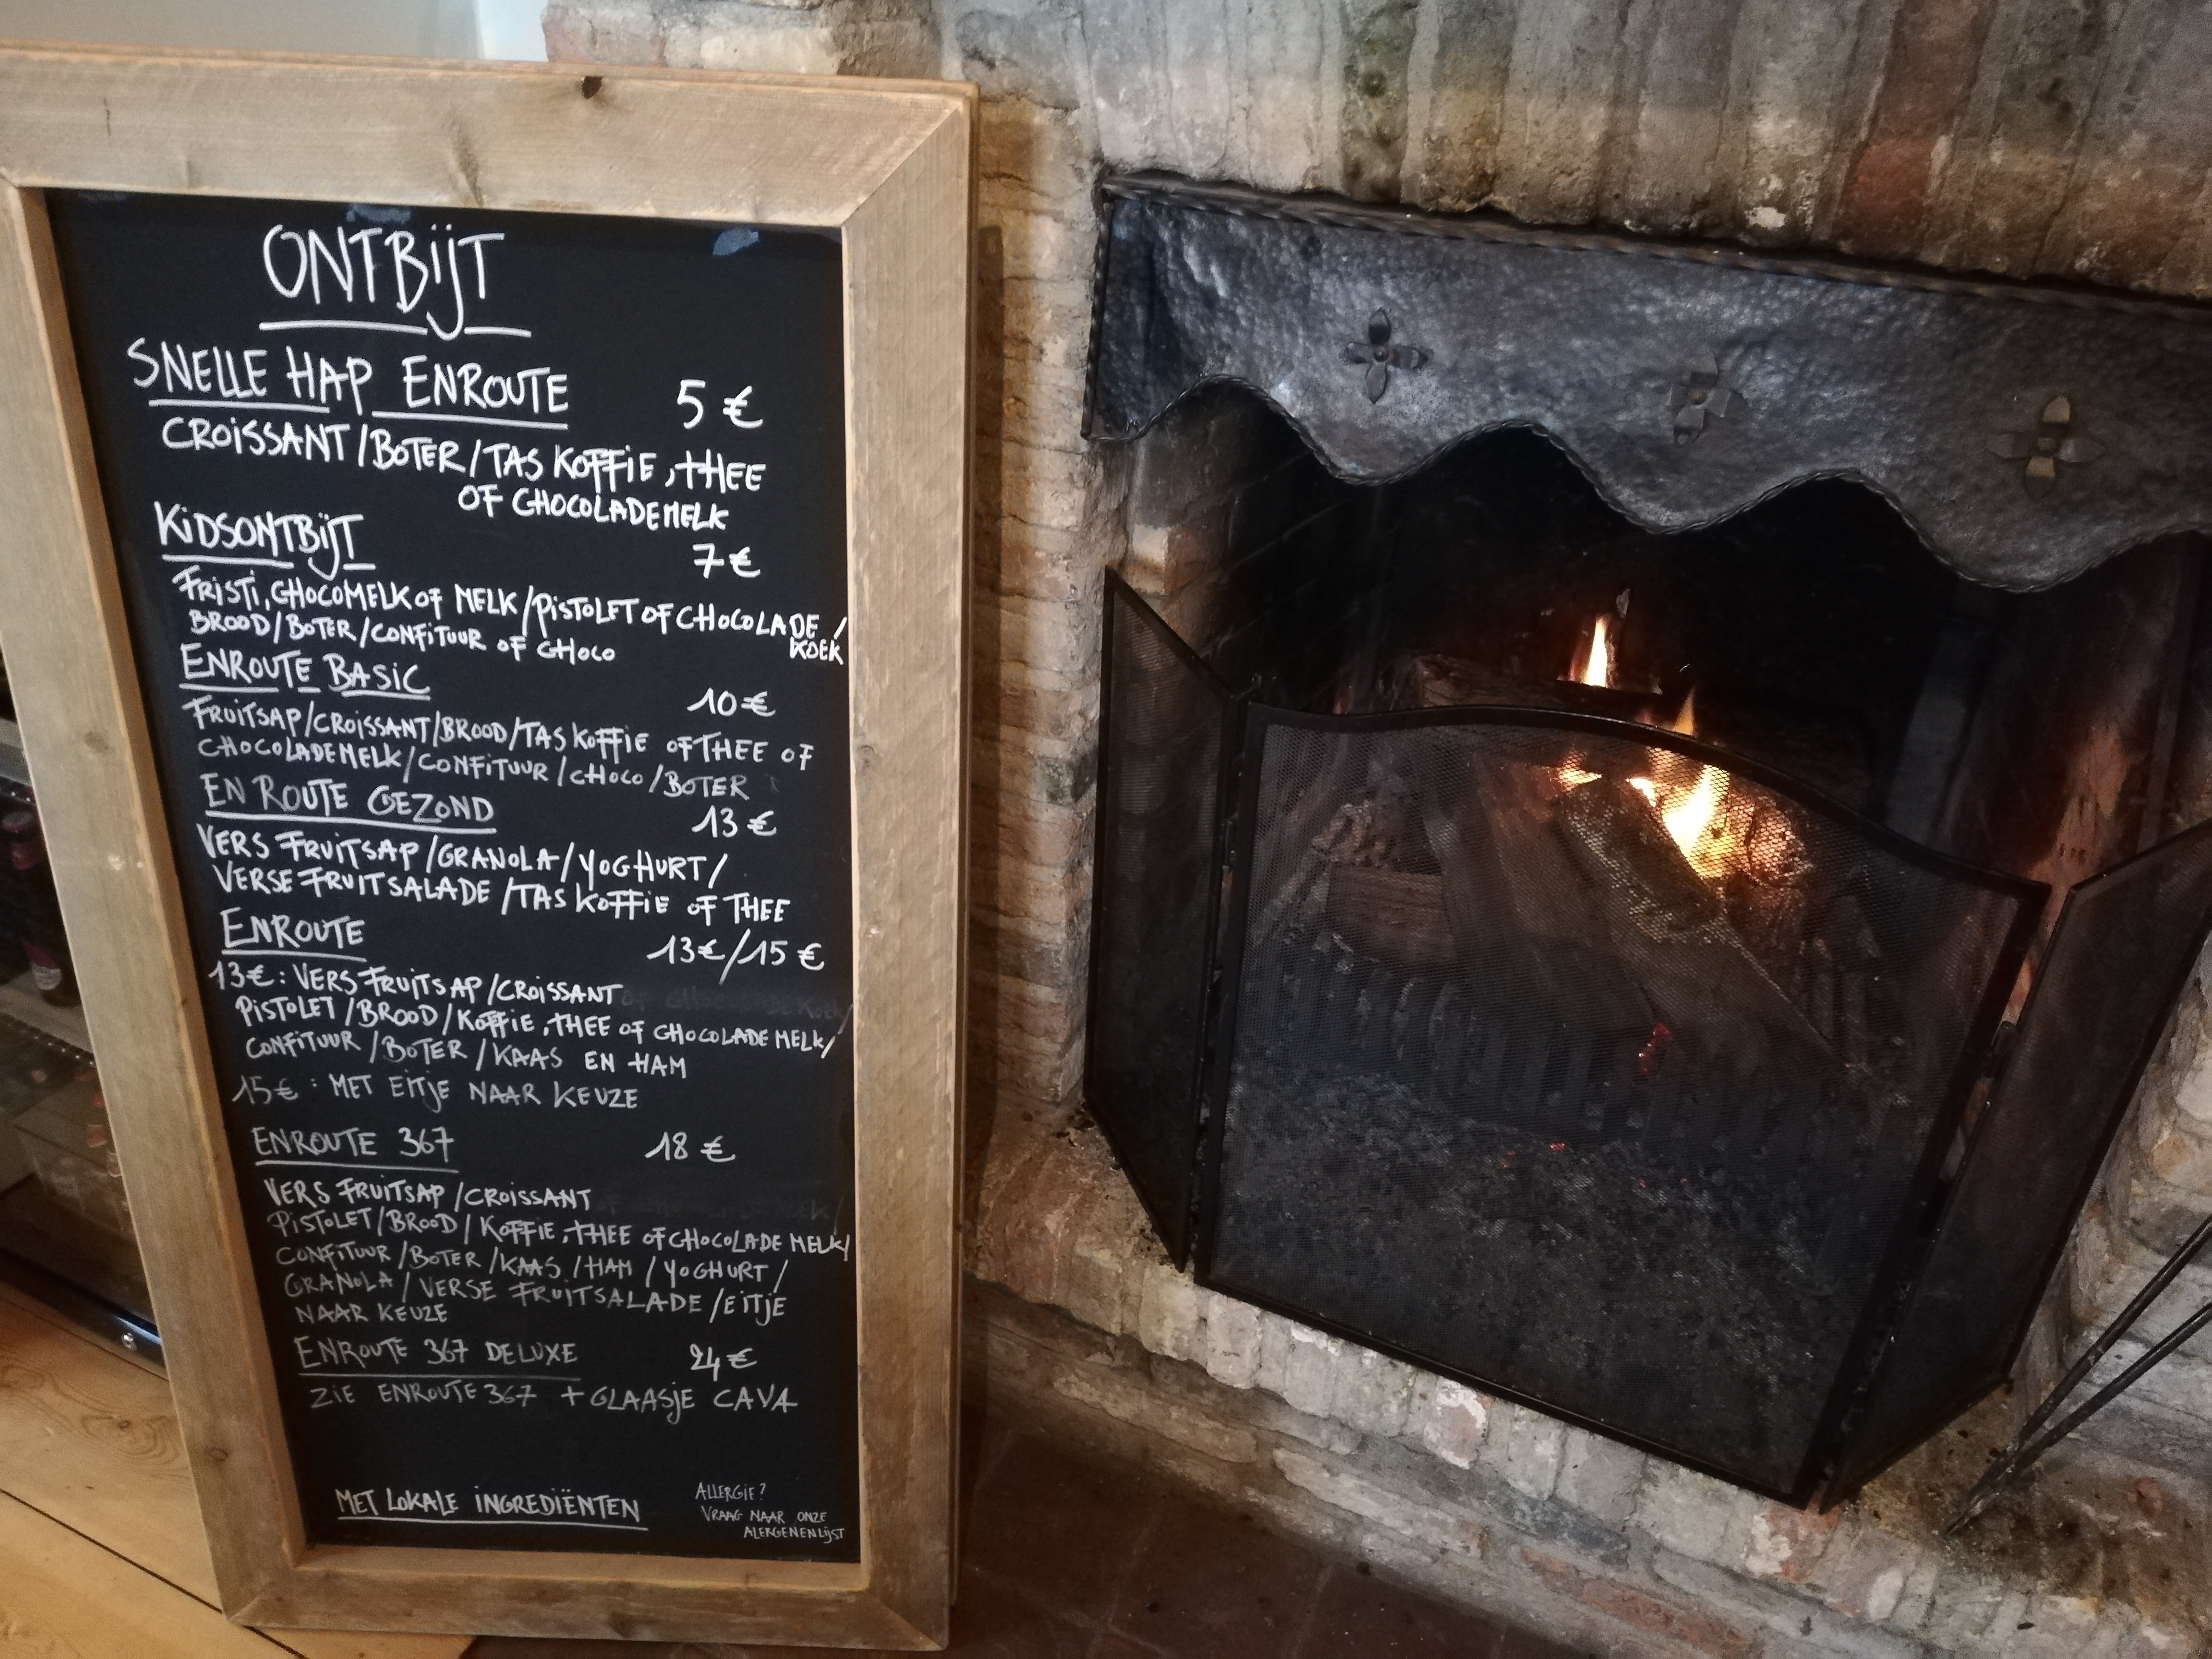 ONTBIJT
SNELLE HAP ENROUTE 5 €
CROISSANT/BOTER/TAS KOFFIE, THEE
OF CHOCOLADEMELK
KIDSONTBIJT 7 €
FRISTI, CHOCOMELK OF MELK/PISTOLET OF CHOCOLADE/
KOEK
BROOD/BOTER/CONFITUUR OF CHOCO
ENROUTE BASIC 10 €
FRUITSAP/CROISSANT/BROOD/TAS KOFFIE OF THEE OF
CHOCOLADEMELK/CONFITUUR/CHOCO/BOTER
EN ROUTE GEZOND 13 €
VERS FRUITSAP/GRANOLA/YOGHURT/
VERSE FRUITSALADE/TAS KOFFIE OF THEE
ENROUTE 13€/15 €
13€: VERS FRUITSAP/CROISSANT
PISTOLET/BROOD/KOFFIE, THEE OF CHOCOLADE MELK/
CONFITUUR/BOTER/KAAS EN HAM
15€: MET EITJE NAAR KEUZE
ENROUTE 367 18 €
VERS FRUITSAP/CROISSANT
PISTOLET/BROOD/KOFFIE, THEE OF CHOCOLADE MELK/
CONFITUUR/BOTER/KAAS/HAM/YOGHURT/
GRANOLA/VERSE FRUITSALADE/EITJE
NAAR KEUZE
ENROUTE 367 DELUXE 24 €
ZIE ENROUTE 367 + GLAASJE CAVA
MET LOKALE INGREDIËNTEN
ALLERGIE?
VRAAG NAAR ONZE
ALERGENENLIJST